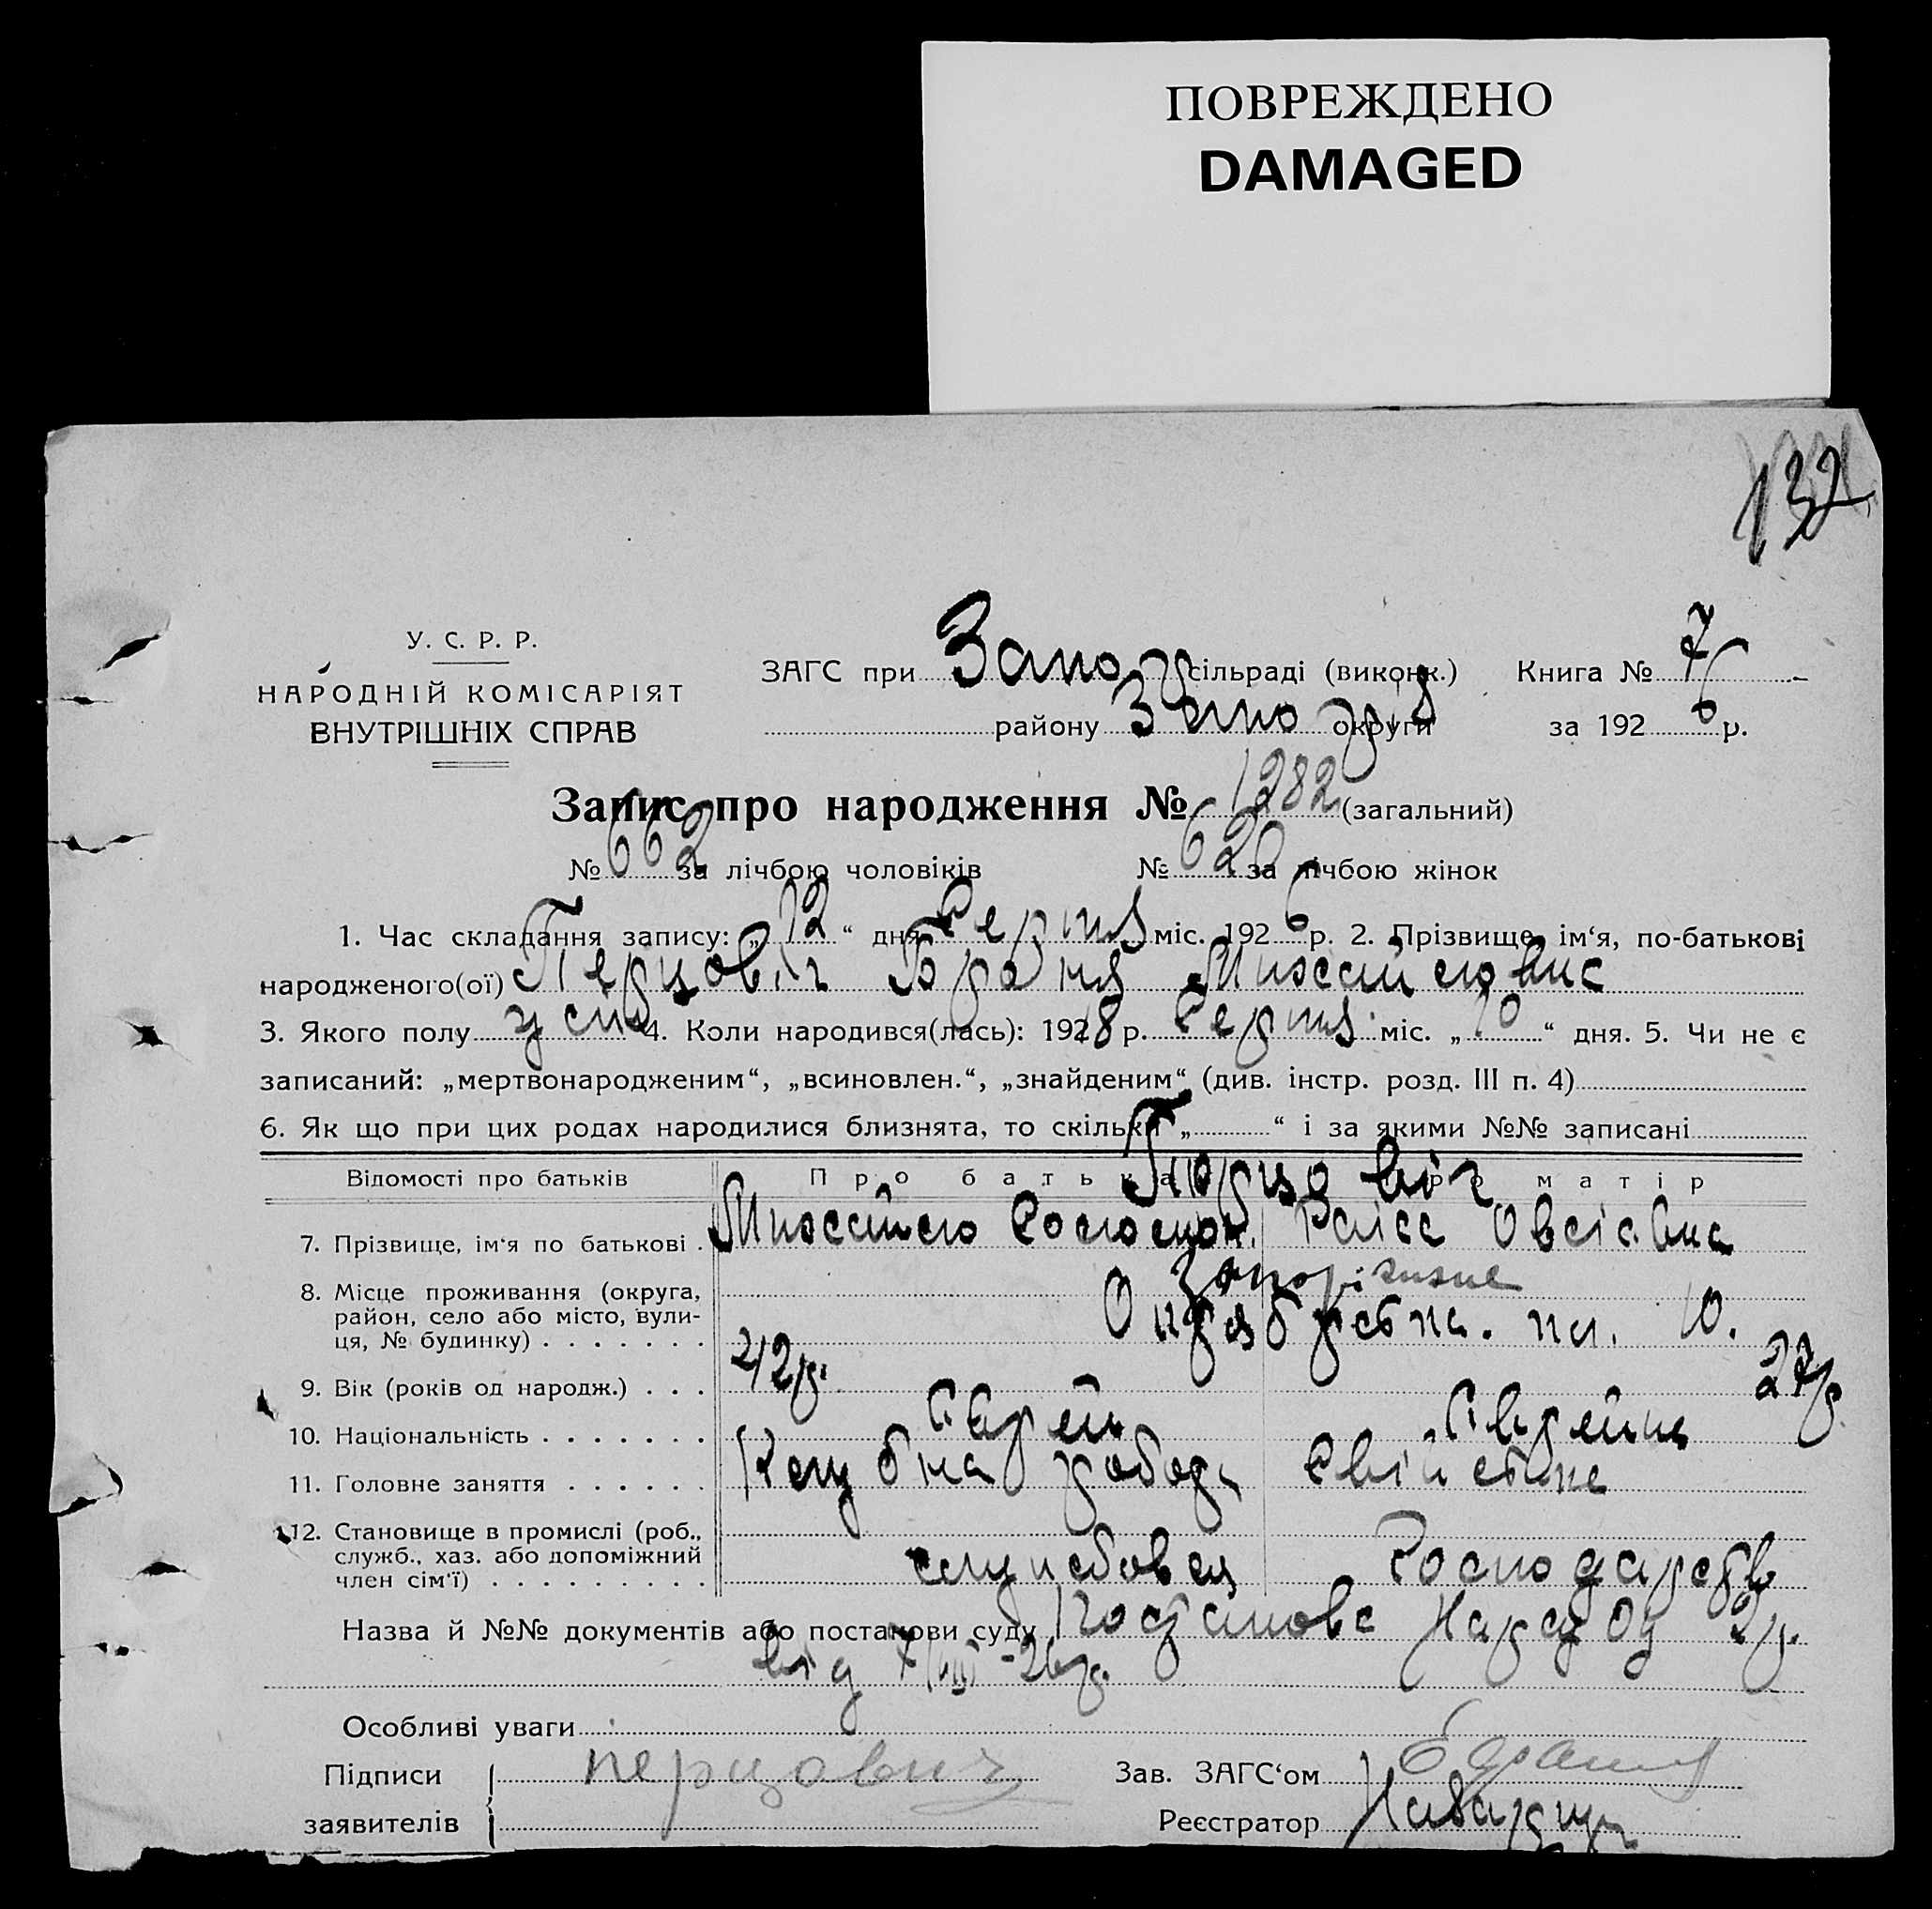 ПОВРЕЖДЕНО
DAMAGED
132
У. С. Р. Р.
НАРОДНІЙ КОМІСАРІЯТ
ВНУТРІШНІХ СПРАВ
ЗАГС при Запор сільраді (виконк.) Книга № 7
району Запоріз округи за 1926 р.
Запис про народження № 1282 (загальний)
№ 662 за лічбою чоловіків № 620 за лічбою жінок
1. Час складання запису: „12“ дня Серпня міс. 1926 р. 2. Прізвище, ім‘я, по-батькові
народженого(ої) Перцовіч
3. Якого полу 4. Коли народився(лась): 1918 р. Серпня міс. „10“ дня. 5. Чи не є
записаний: „мертвонародженим“, „всиновлен.“, „знайденим“ (див. інстр. розд. III п. 4)
6. Як що при цих родах народилися близнята, то скільки „ “ і за якими №№ записані
Відомості про батьків Про батька Про матір
Перцовіч
7. Прізвище, ім‘я по батькові . Раіса Овсіевна
8. Місце проживання (округа,
район, село або місто, вули-
ця, № будинку) . . . . . . .
Запоріжжє
пл. 10.
9. Вік (років од народж.) . . . 42р. 27р.
10. Національність . . . . . . . Єврей Єврейка
11. Головне заняття . . . . . .
12. Становище в промислі (роб.,
служб., хаз. або допоміжний
член сім‘ї) . . . . . . . . . .
службовец
Назва й №№ документів або постанови суду Постанова Нарсуду 2р.
від 7/VIII-26р.
Особливі уваги
Підписи
заявителів
перцович
Зав. ЗАГС‘ом
Реєстратор